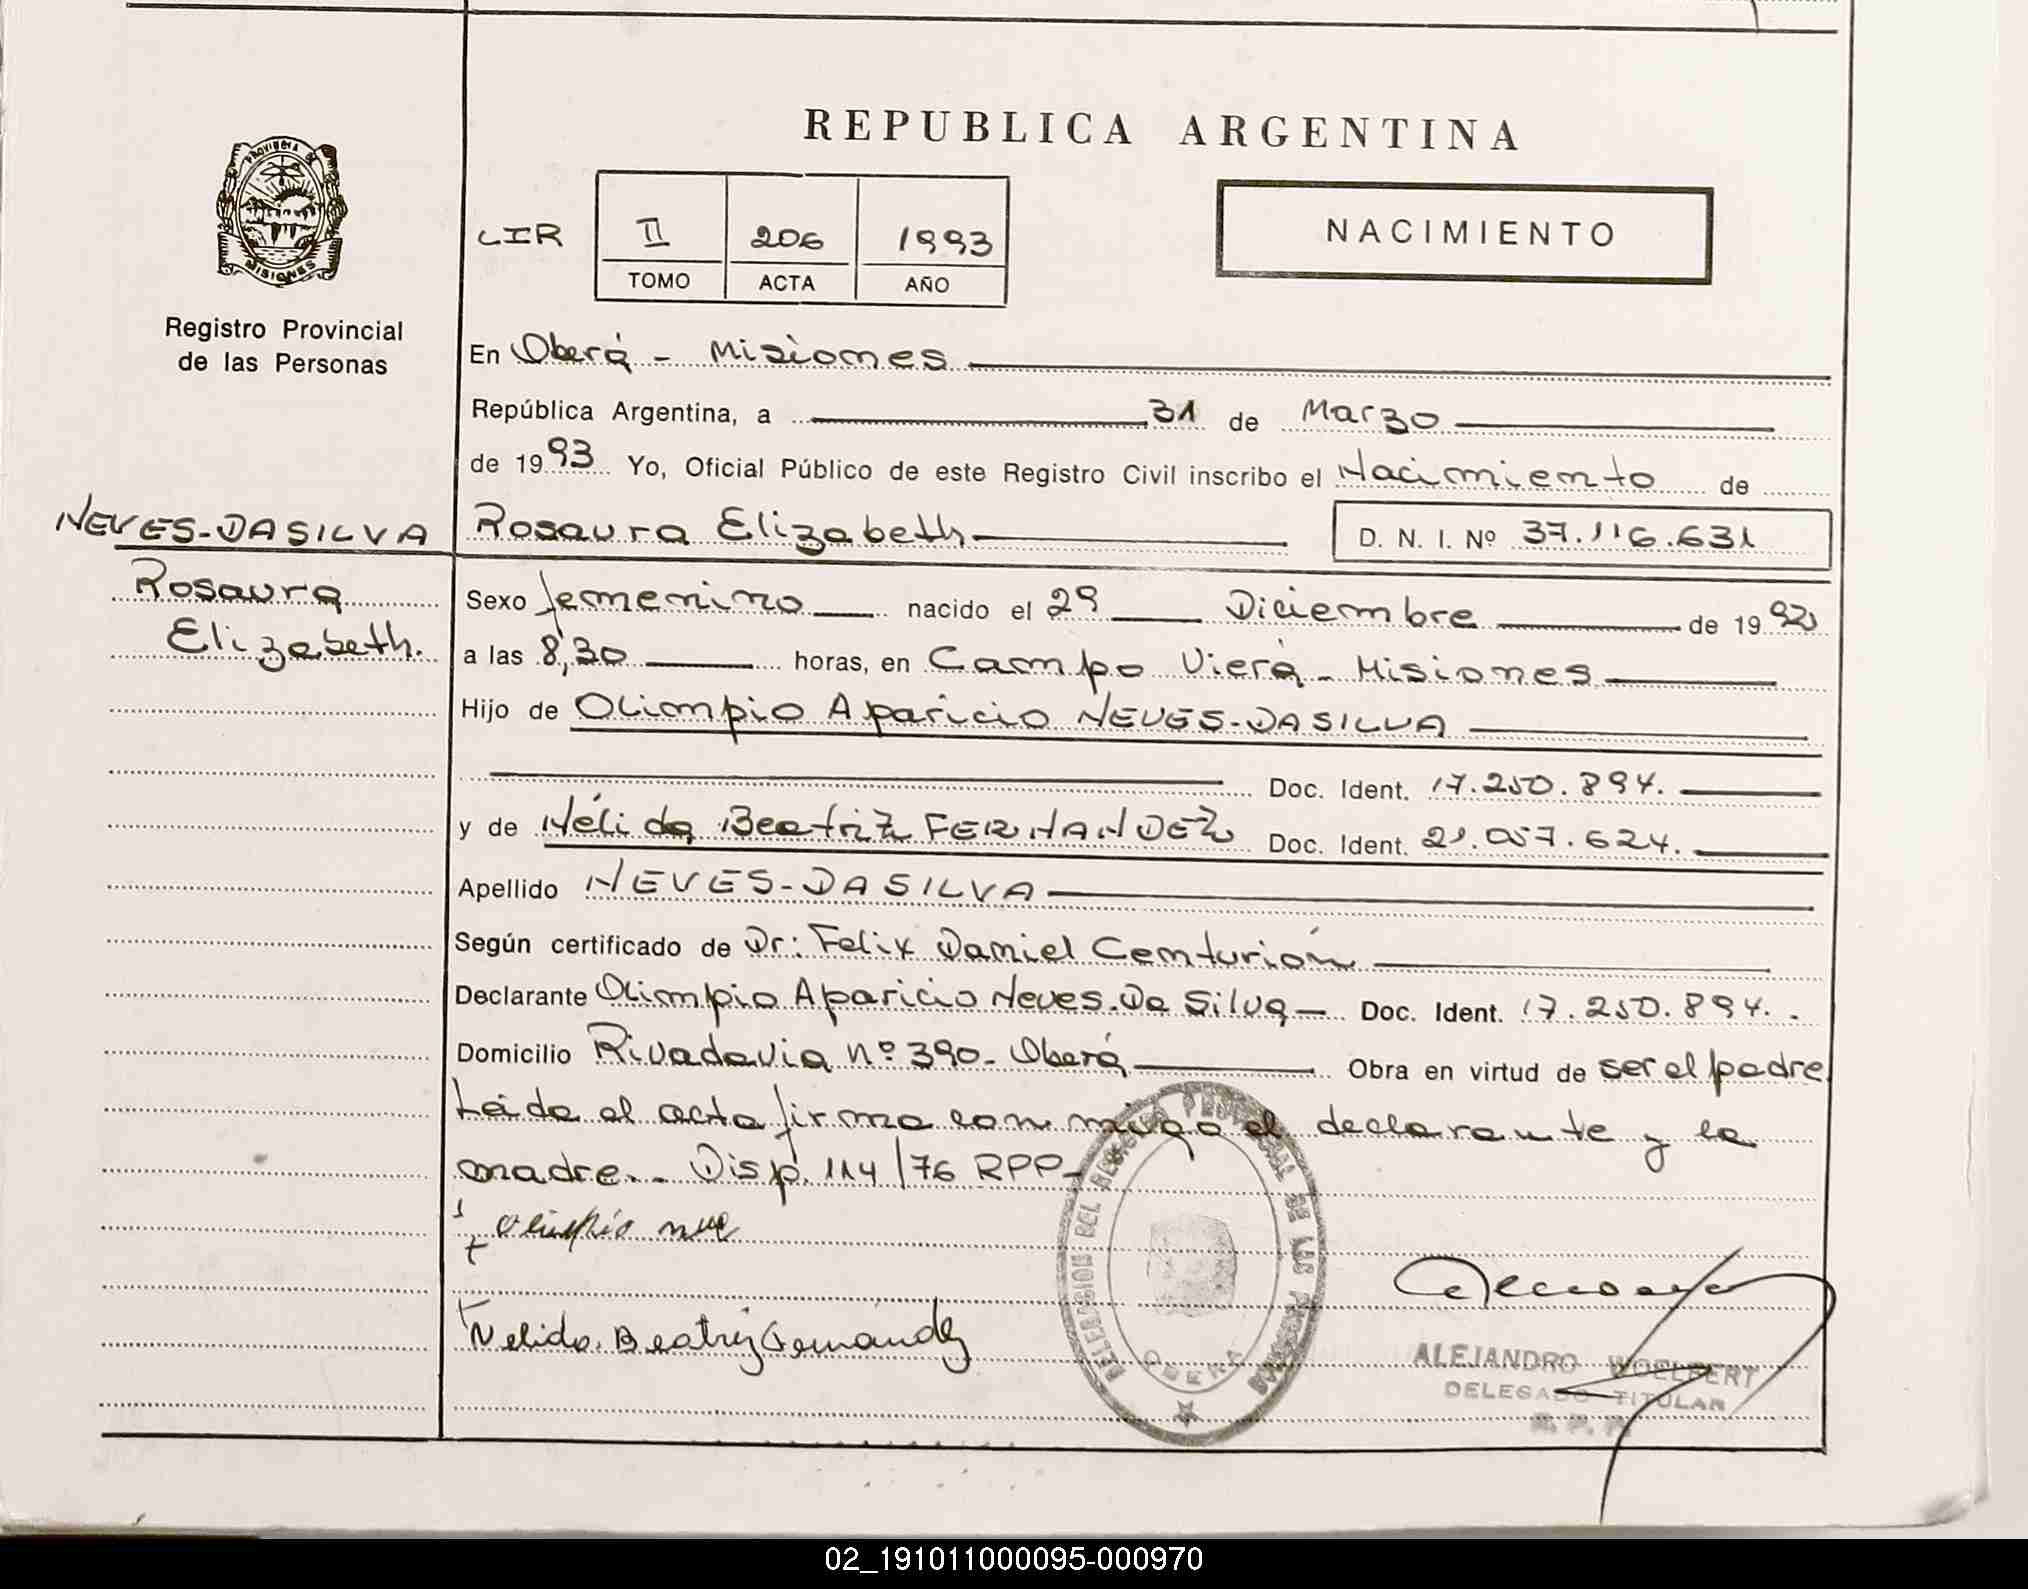 REPUBLICA ARGENTINA
PROVINCIA DE
MISIONES
Registro Provincial
de las Personas
LIR
II 206 1993
TOMO ACTA AÑO
NACIMIENTO
En Oberá - Misiones
República Argentina, a 31 de Marzo
de 1993 Yo, Oficial Público de este Registro Civil inscribo el Nacimiento de
NEVES-DASILVA
Rosaura Elizabeth.
Rosaura Elizabeth D. N. I. Nº 37.116.631
Sexo femenino nacido el 29 Diciembre de 1992
a las 8,30 horas, en Campo Viera - Misiones
Hijo de Olimpio Aparicio NEVES-DASILVA
Doc. Ident. 17.250.894.
y de Nélida Beatriz FERNANDEZ Doc. Ident. 21.057.624.
Apellido NEVES-DASILVA
Según certificado de Dr: Felix Daniel Centurión
Declarante Olimpio Aparicio Neves-Da Silva Doc. Ident. 17.250.894.
Domicilio Rivadavia nº 390- Oberá Obra en virtud de ser el padre
Leída el acta firma conmigo el declarante y la
madre.- Disp. 114/76 RPP-
Olimpio
Nelida Beatriz Fernández
DELEGACION DEL REGISTRO PROVINCIAL DE LAS PERSONAS
OBERA
ALEJANDRO WOELBERT
DELEGADO TITULAR
R. P. P.
02_191011000095-000970